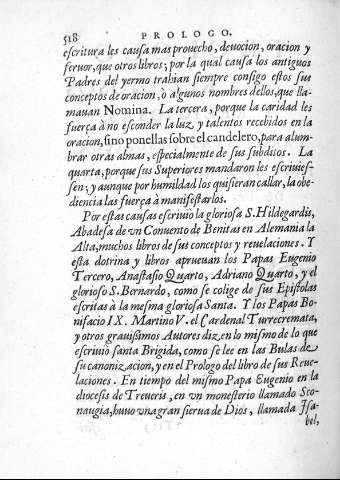 518 PROLOGO.
escritura les causa mas prouecho, deuocion, oracion y
feruor, que otros libros; por la qual causa los antiguos
Padres del yermo trahian siempre consigo estos sus
conceptos de oracion, o algunos nombres dellos, que lla-
mauan Nomina. La tercera, porque la caridad les
fuerça à no esconder la luz y talentos recebidos en la
oracion, sino ponellas sobre el candelero, para alum-
brar otras almas, especialmente de sus subditos. La
quarta, porque sus Superiores mandaron les escriuies-
sen; y aunque por humildad los quisieran callar, la obe-
diencia las fuerça à manifestarlos.
Por estas causas escriuio la gloriosa S. Hildegardis,
Abadesa de vn Conuento de Benitas en Alemania la
Alta, muchos libros de sus conceptos y reuelaciones. Y
esta dotrina y libros aprueuan los Papas Eugenio
Tercero, Anastasio Quarto, Adriano Quarto, y el
glorioso S. Bernardo, como se colige de sus Epistolas
escritas à la mesma gloriosa Santa. Y los Papas Bo-
nifacio IX. Martino V. el Cardenal Turrecremata,
y otros grauissimos Autores dizen lo mismo de lo que
escriuio santa Brigida, como se lee en las Bulas de
su canonizacion, y en el Prologo del libro de sus Reue-
laciones. En tiempo del mismo Papa Eugenio en la
diocesis de Treueris, en vn monesterio llamado Sco-
naugia, huuo vna gran sierua de Dios, llamada Isa-
bel,